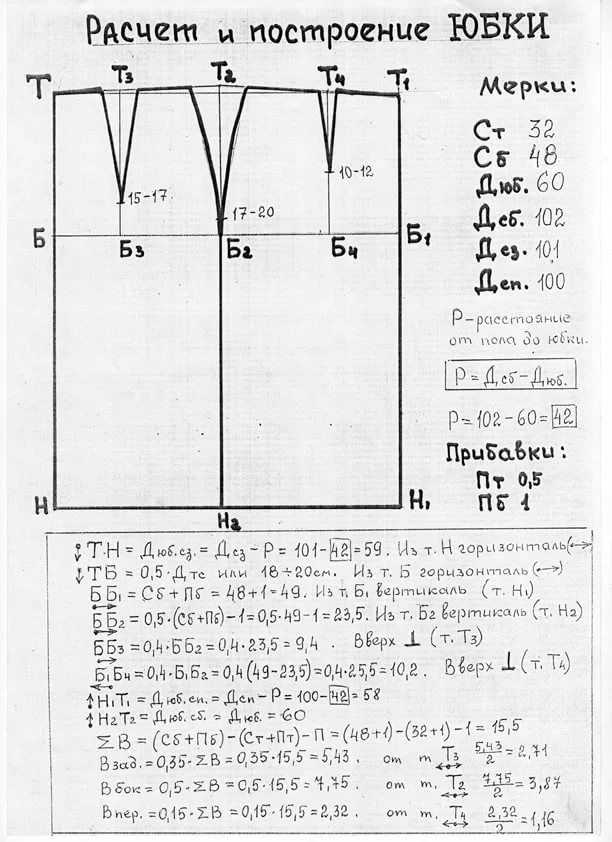 Расчет и построение ЮБКИ
Т Т3 Т2 Т4 Т1
15-17
17-20
10-12
Б Б3 Б2 Б4 Б1
Н Н2 Н1
Мерки:
Ст 32
Сб 48
Дюб. 60
Дсб. 102
Дсз. 101
Дсп. 100
Р-расстояние
от пола до юбки.
Р=Дсб-Дюб.
Р=102-60=42
Прибавки:
Пт 0,5
Пб 1
Т.Н = Дюб.сз. = Дсз-Р = 101-42=59. Из т. Н горизонталь(↔)
ТБ = 0,5·Дтс или 18÷20см. Из т. Б горизонталь(↔)
ББ1 = Сб+Пб = 48+1=49. Из т. Б1 вертикаль (т. Н1)
ББ2 = 0,5·(Сб+Пб)-1=0,5·49-1=23,5. Из т. Б2 вертикаль (т. Н2)
ББ3=0,4·ББ2=0,4·23,5=9,4. Вверх ⊥ (т. Т3)
Б1Б4=0,4·Б1Б2=0,4(49-23,5)=0,4·25,5=10,2. Вверх ⊥ (т. Т4)
Н1Т1=Дюб.сп.=Дсп-Р=100-42=58
Н2Т2=Дюб.сб.=Дюб.=60
ΣВ=(Сб+Пб)-(Ст+Пт)-П=(48+1)-(32+1)-1=15,5
Взад.=0,35·ΣВ=0,35·15,5=5,43. от т. Т3 5,43/2=2,71
Вбок=0,5·ΣВ=0,5·15,5=7,75. от т. Т2 7,75/2=3,87
Впер.=0,15·ΣВ=0,15·15,5=2,32. от т. Т4 2,32/2=1,16